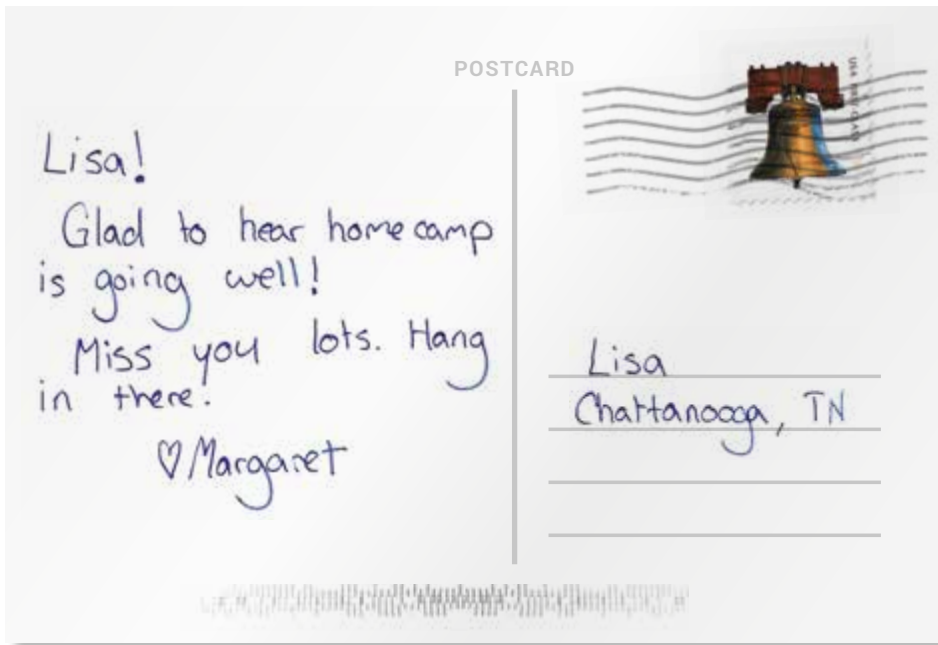 POSTCARD
Lisa!
Glad to hear home camp
is going well!
Miss you lots. Hang
in there!
♡Margaret
USA FIRST-CLASS
Lisa
Chattanooga, TN